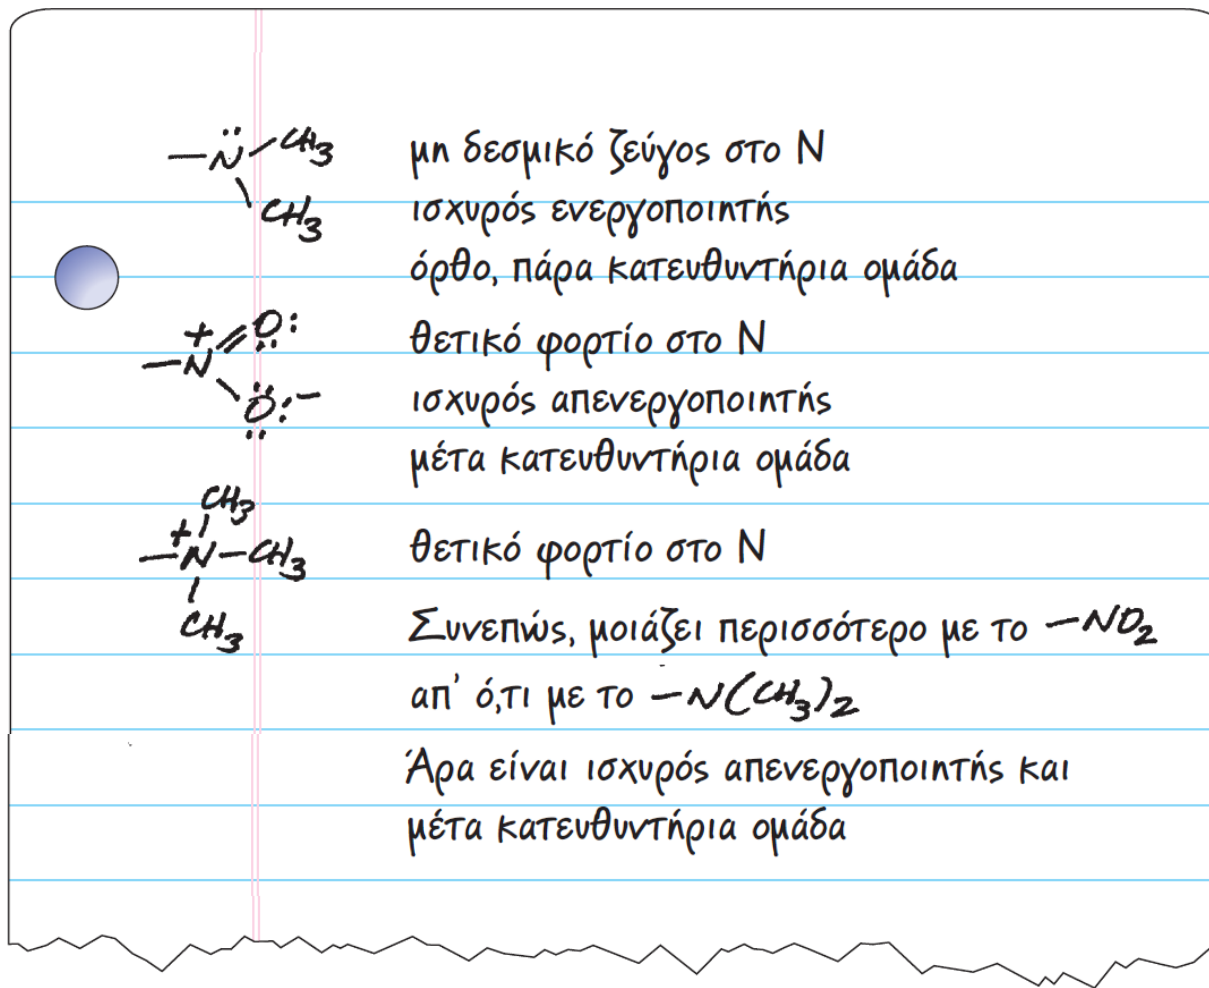 –N̈–CH₃ μη δεσμικό ζεύγος στο Ν
CH₃ ισχυρός ενεργοποιητής
όρθο, πάρα κατευθυντήρια ομάδα
+ O: θετικό φορτίο στο Ν
–N
O:– ισχυρός απενεργοποιητής
μέτα κατευθυντήρια ομάδα
CH₃
+
–N–CH₃ θετικό φορτίο στο Ν
CH₃ Συνεπώς, μοιάζει περισσότερο με το –NO₂
απ' ό,τι με το –N(CH₃)₂
Άρα είναι ισχυρός απενεργοποιητής και
μέτα κατευθυντήρια ομάδα